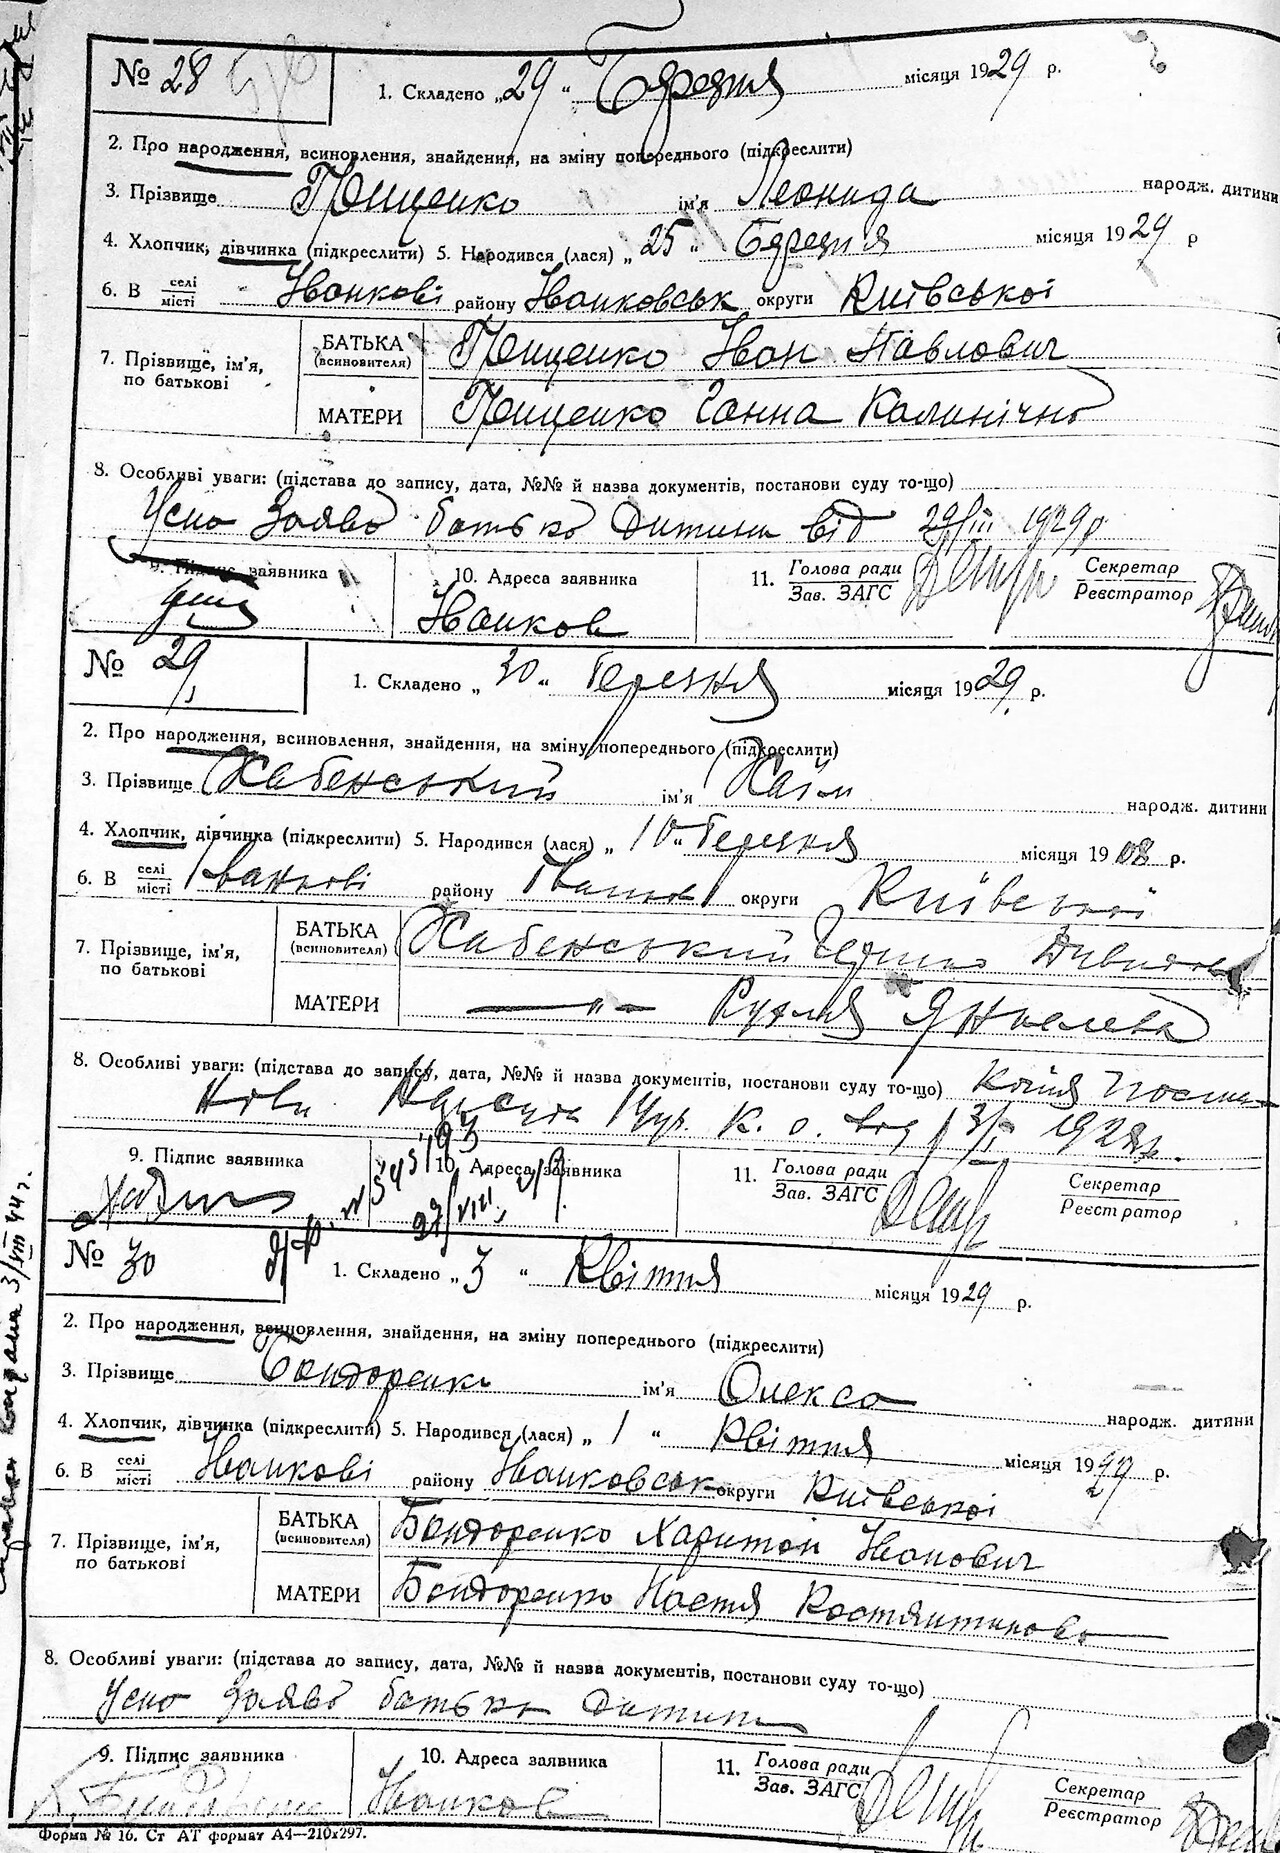 № 28
1. Складено „29" Березня місяця 1929 р.
2. Про народження, всиновлення, знайдення, на зміну попереднього (підкреслити)
3. Прізвище Пищенко ім'я Леонида народж. дитини
4. Хлопчик, дівчинка (підкреслити) 5. Народився (лася) „25" Березня місяця 1929 р
6. В селі місті Іванкові району Іванковськ округи Київської
7. Прізвище, ім'я, по батькові
БАТЬКА (всиновителя) Пищенко Іван Павлович
МАТЕРИ Пищенко Ганна Калинічна
8. Особливі уваги: (підстава до запису, дата, №№ й назва документів, постанови суду то-що)
Усна Заява батька дитини від 29/III 1929р
9. Підпис заявника 10. Адреса заявника 11. Голова ради Зав. ЗАГС Секретар Реєстратор
Іванков
№ 29
1. Складено „30" Березня місяця 1929 р.
2. Про народження, всиновлення, знайдення, на зміну попереднього (підкреслити)
3. Прізвище Хабенський ім'я Хаїм народж. дитини
4. Хлопчик, дівчинка (підкреслити) 5. Народився (лася) „10" Березня місяця 1908 р.
6. В селі місті Іванкові району Іванков округи Київської
7. Прізвище, ім'я, по батькові
БАТЬКА (всиновителя) Хабенський Гершко
МАТЕРИ —"— Рухля Янкелева
8. Особливі уваги: (підстава до запису, дата, №№ й назва документів, постанови суду то-що) Копія Поста-
нови Нарсуда К. о. від
9. Підпис заявника 10. Адреса заявника 11. Голова ради Зав. ЗАГС Секретар Реєстратор
27/VIII
№ 30
1. Складено „3" Квітня місяця 1929 р.
2. Про народження, всиновлення, знайдення, на зміну попереднього (підкреслити)
3. Прізвище Бондаренко ім'я Олекса народж. дитини
4. Хлопчик, дівчинка (підкреслити) 5. Народився (лася) „1" Квітня місяця 1929 р.
6. В селі місті Іванкові району Іванковськ округи Київської
7. Прізвище, ім'я, по батькові
БАТЬКА (всиновителя) Бондаренко Харитон Іванович
МАТЕРИ Бондаренко Настя Костянтинова
8. Особливі уваги: (підстава до запису, дата, №№ й назва документів, постанови суду то-що)
Усна Заява батька дитини
9. Підпис заявника 10. Адреса заявника 11. Голова ради Зав. ЗАГС Секретар Реєстратор
Іванков
Форма № 16. Ст АТ формат А4—210x297.
3/VIII 44 г.